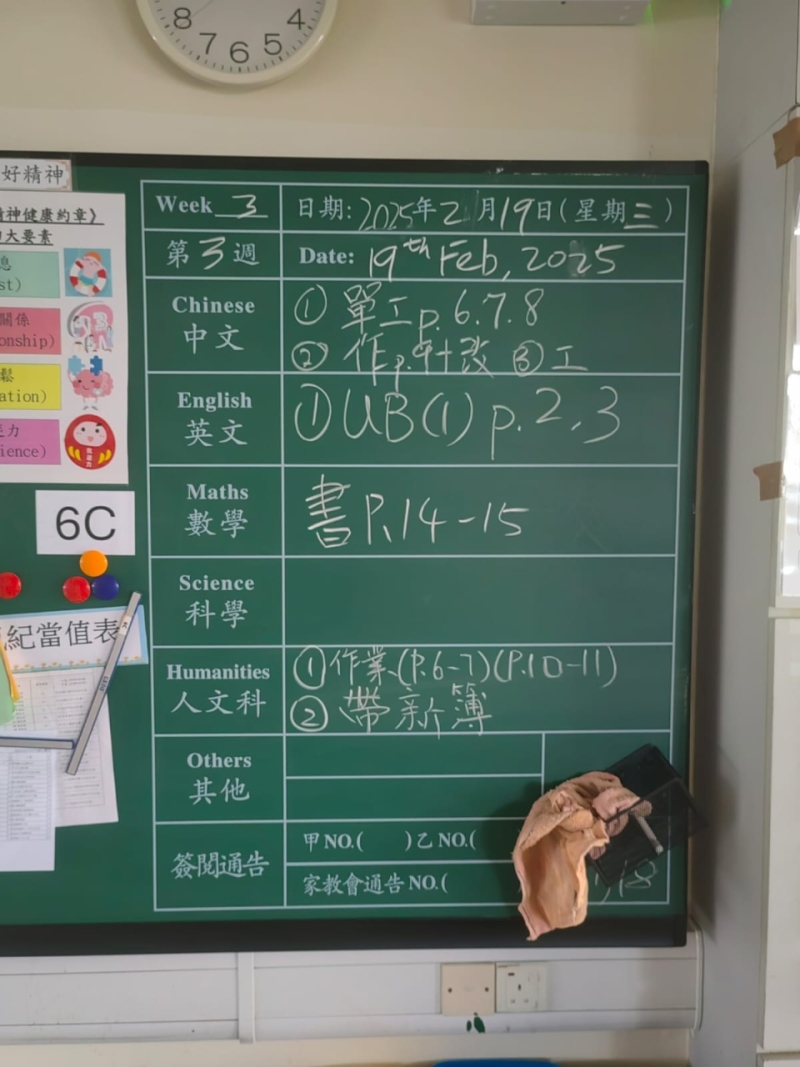 8 7 6 5 4
好精神
神健康約章》
大要素
st)
關係
onship)
鬆
ation)
力
ience)
6C
紀當值表
Week 3 日期: 2025年2月19日(星期三)
第3週 Date: 19th Feb, 2025
Chinese ① 單工p.6.7.8
中文 ② 作p.9+改 ③工
English ① UB(1) p.2,3
英文
Maths 書P.14-15
數學
Science
科學
Humanities ①作業(P.6-7)(P.10-11)
人文科 ② 帶新簿
Others
其他
簽閱通告 甲NO.( )乙NO.(
家教會通告NO.(